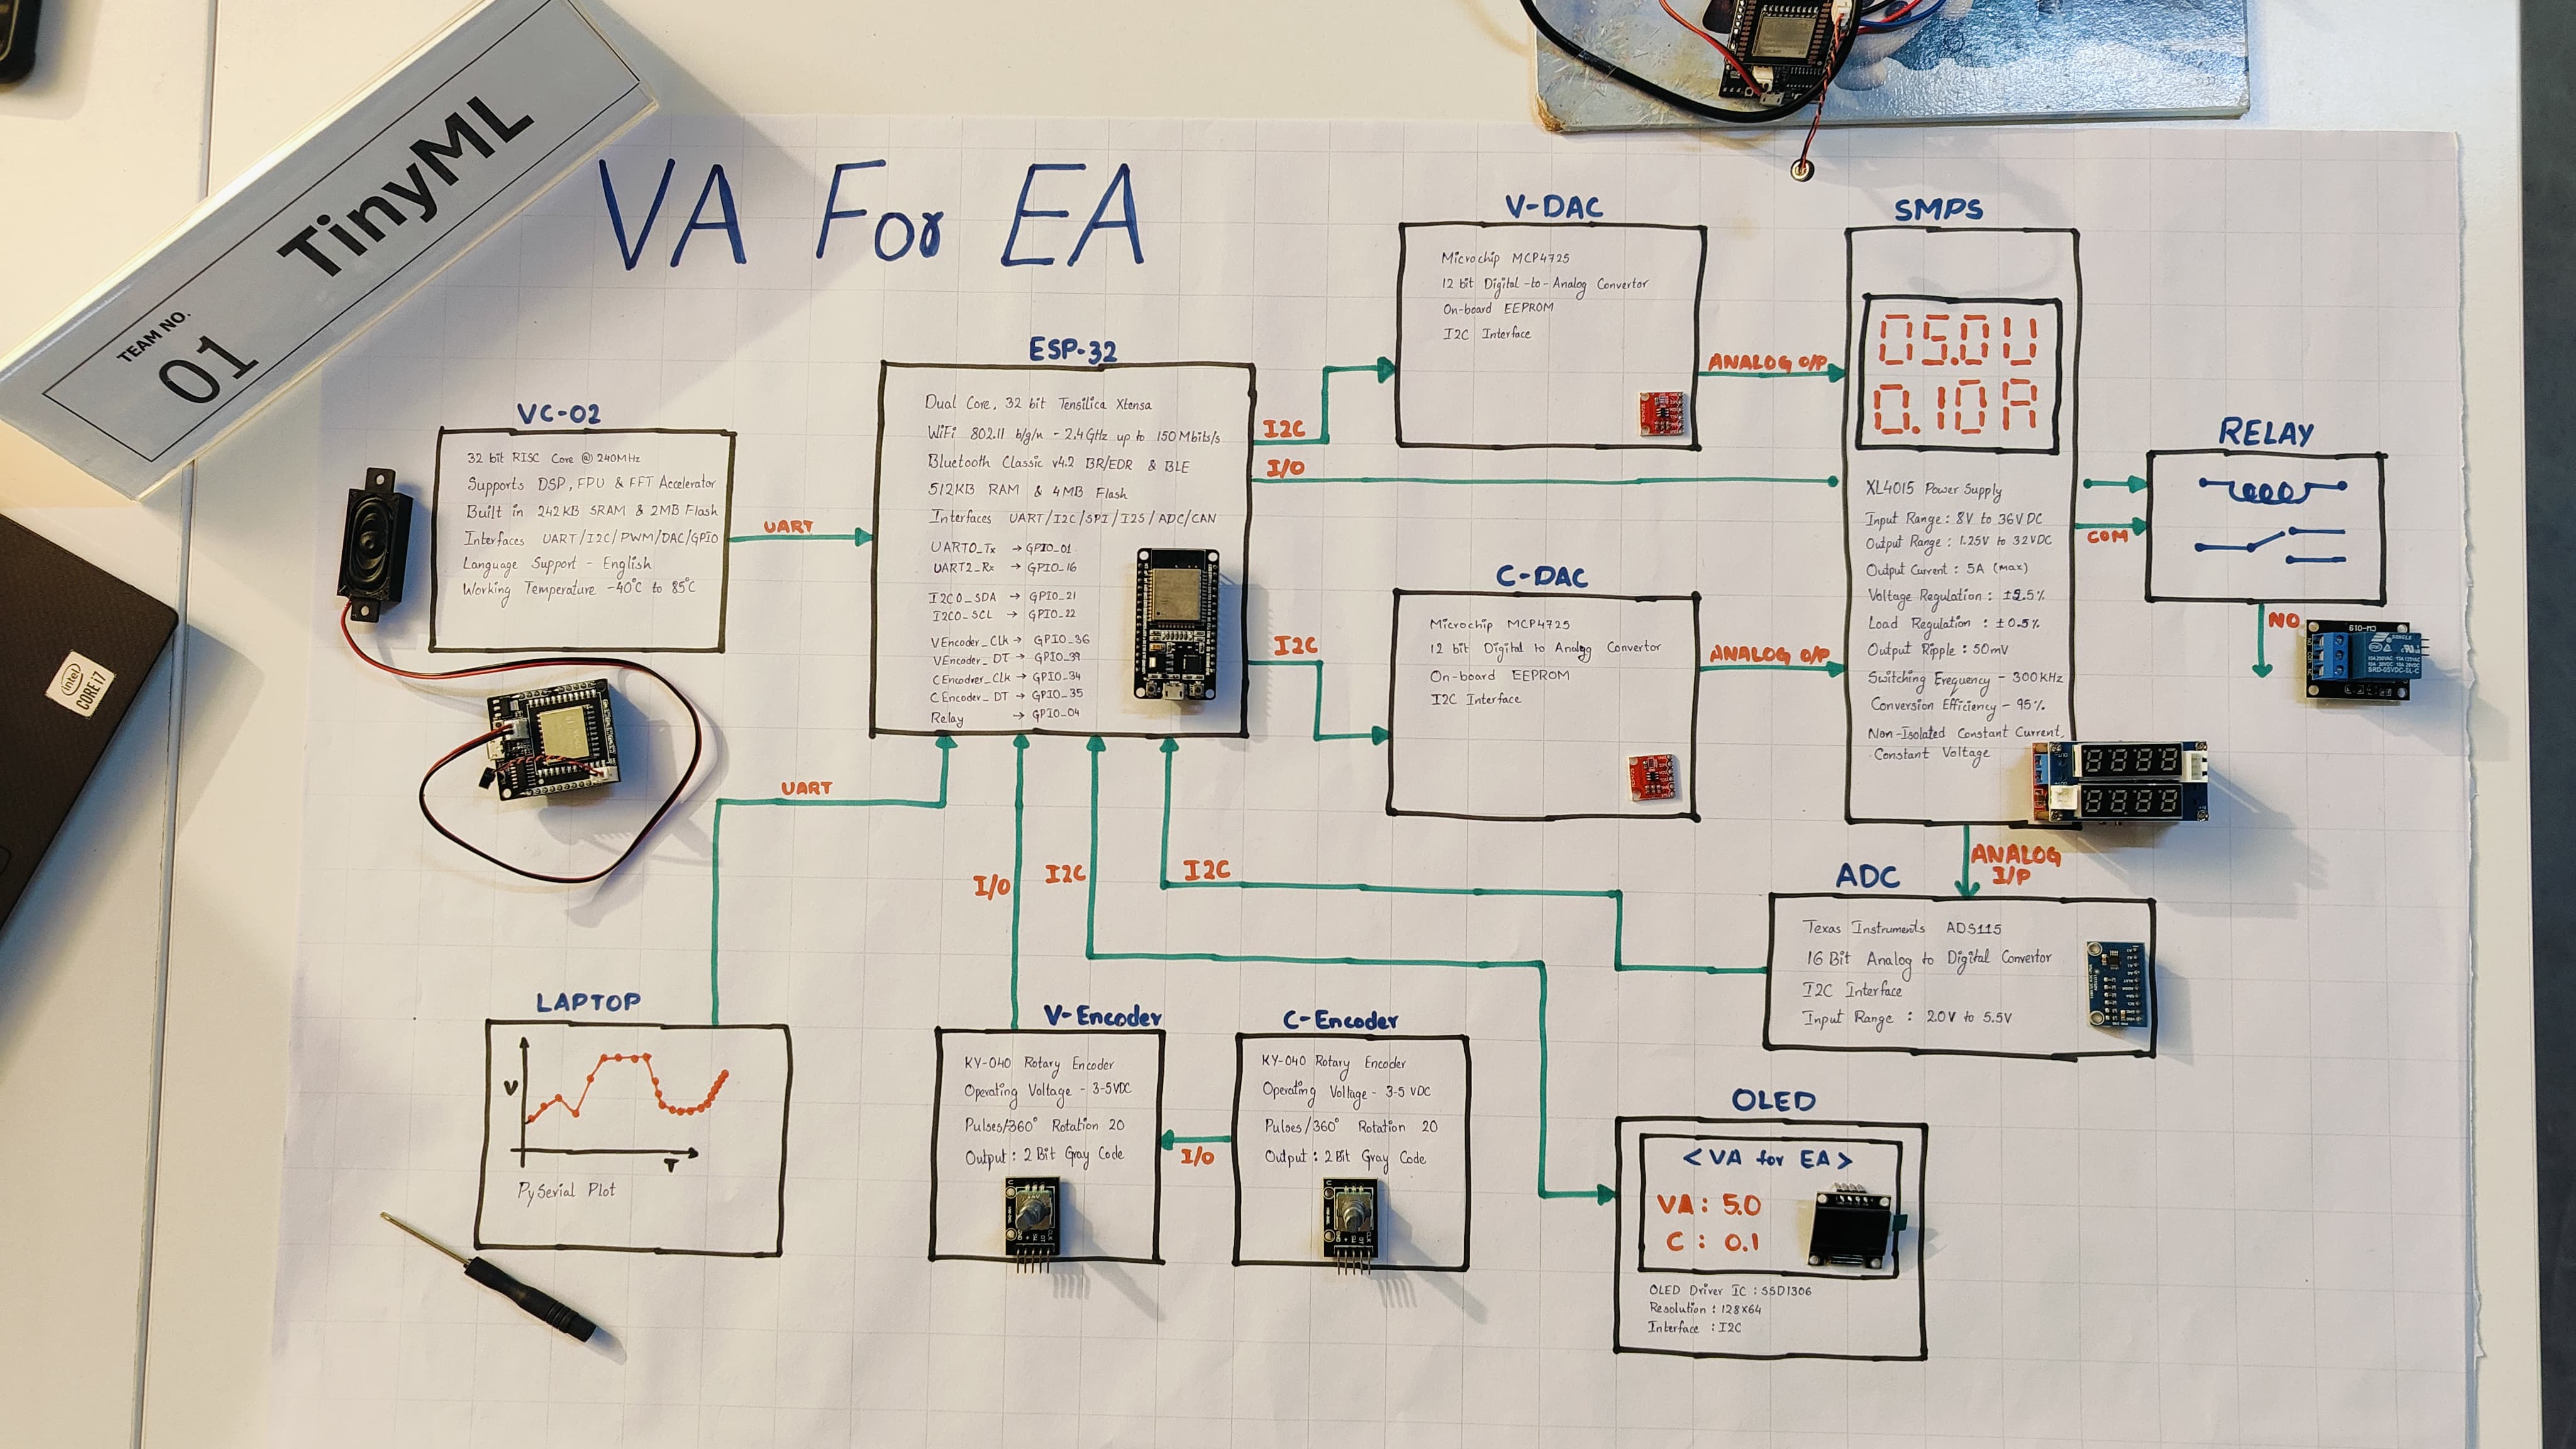 TEAM NO.
01
TinyML
intel
CORE i7
VA For EA
VC-02
32 bit RISC Core @ 240MHz
Supports DSP, FPU & FFT Accelerator
Built in 242KB SRAM & 2MB Flash
Interfaces UART/I2C/PWM/DAC/GPIO
Language Support - English
Working Temperature -40°C to 85°C
UART
ESP-32
Dual Core, 32 bit Tensilica Xtensa
WiFi 802.11 b/g/n - 2.4GHz up to 150Mbits/s
Bluetooth Classic v4.2 BR/EDR & BLE
512KB RAM & 4MB Flash
Interfaces UART/I2C/SPI/I2S/ADC/CAN
UART0_Tx → GPIO_01
UART2_Rx → GPIO_16
I2C0_SDA → GPIO_21
I2C0_SCL → GPIO_22
VEncoder_Clk → GPIO_36
VEncoder_DT → GPIO_39
CEncodrer_Clk → GPIO_34
CEncoder_DT → GPIO_35
Relay → GPIO_04
I2C
I/O
I2C
V-DAC
Microchip MCP4725
12 bit Digital-to-Analog Convertor
On-board EEPROM
I2C Interface
ANALOG O/P
C-DAC
Microchip MCP4725
12 bit Digital to Analog Convertor
On-board EEPROM
I2C Interface
ANALOG O/P
SMPS
05.0U
0.10A
XL4015 Power Supply
Input Range: 8V to 36V DC
Output Range: 1.25V to 32VDC
Output Current: 5A (max)
Voltage Regulation: ±2.5%
Load Regulation: ±0.5%
Output Ripple: 50mV
Switching Frequency - 300kHz
Conversion Efficiency - 95%
Non-Isolated Constant Current,
Constant Voltage
COM
RELAY
NO
CW-019
SRD-05VDC-SL-C
ANALOG
I/P
ADC
Texas Instruments ADS115
16 Bit Analog to Digital Convertor
I2C Interface
Input Range : 2.0V to 5.5V
UART
I/O
I2C
I2C
LAPTOP
V
T
PySerial Plot
V-Encoder
KY-040 Rotary Encoder
Operating Voltage - 3-5VDC
Pulses/360° Rotation 20
Output: 2 Bit Gray Code
I/O
C-Encoder
KY-040 Rotary Encoder
Operating Voltage - 3-5 VDC
Pulses/360° Rotation 20
Output: 2 Bit Gray Code
OLED
<VA for EA>
VA: 5.0
C : 0.1
OLED Driver IC : SSD1306
Resolution : 128X64
Interface : I2C